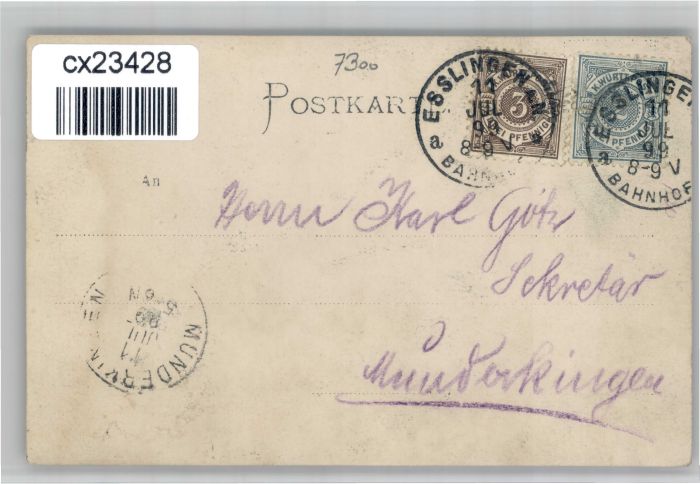 cx23428
7300
POSTKARTE
ESSLINGEN AN
11
JUL
99
8-9 V
a
a
BAHNHOF
3
DREI PFENNIG
ESSLINGEN
11
JUL
99
8-9 V
a
BAHNHOF
K. WÜRTT
PFENNIG
An
Herrn Karl Götz
Sekretär
Munderkingen
MUNDERKINGEN
11
JUL
5-6 N